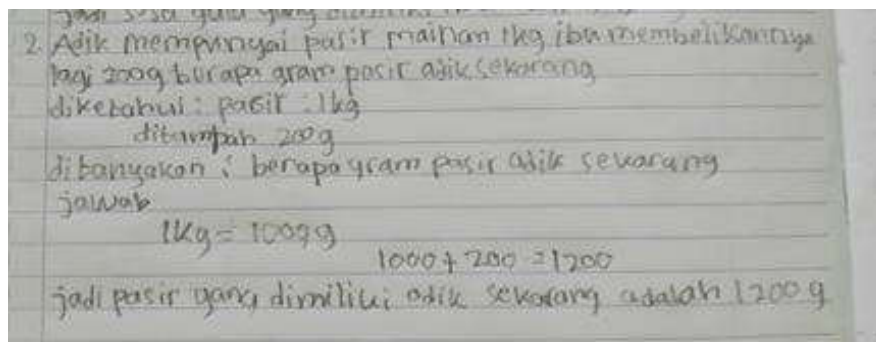 jadi sisa gula yang
2. Adik mempunyai pasir mainan 1kg ibu membelikannya
lagi 200g berapa gram pasir adik sekarang
diketahui : pasir : 1kg
ditambah 200g
ditanyakan : berapa gram pasir adik sekarang
jawab
1kg = 1000g
1000 + 200 = 1200
jadi pasir yang dimiliki adik sekarang adalah 1200 g